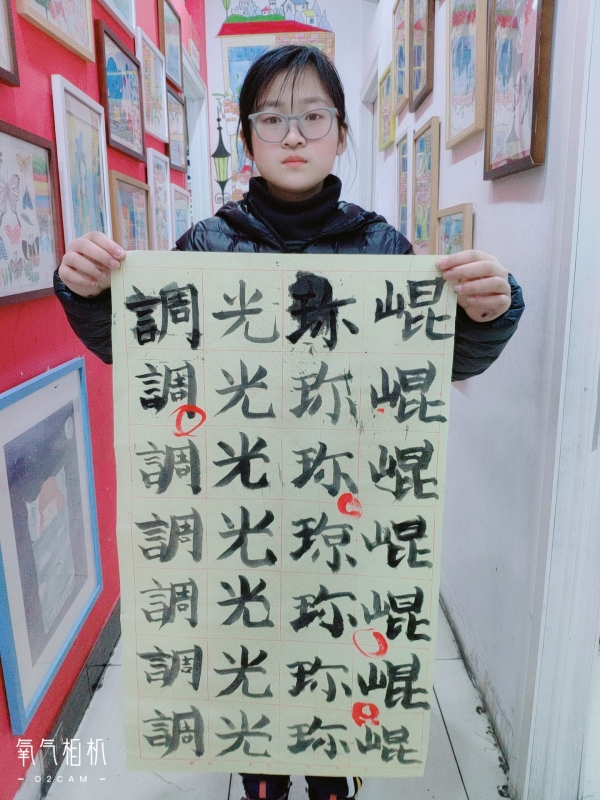 崐崐崐崐崐崐崐
珎珎珎珎珎珎珎
光光光光光光光
調調調調調調調
氧气相机
O2CAM